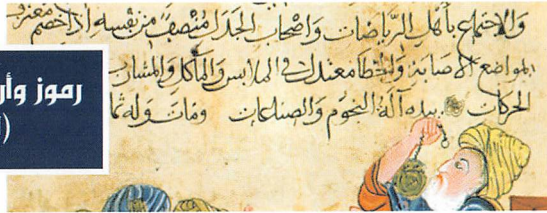 والاجتماع بأهل الرياضات واصحاب الجدل منتصف من نفسه إذا خصم معترف
بمواضع الاصابة والخطأ معتدل في الملابس والمأكل والمشارب
الحركات بيده آلة النجوم والصناعات ومات وله ثما
رموز وأر